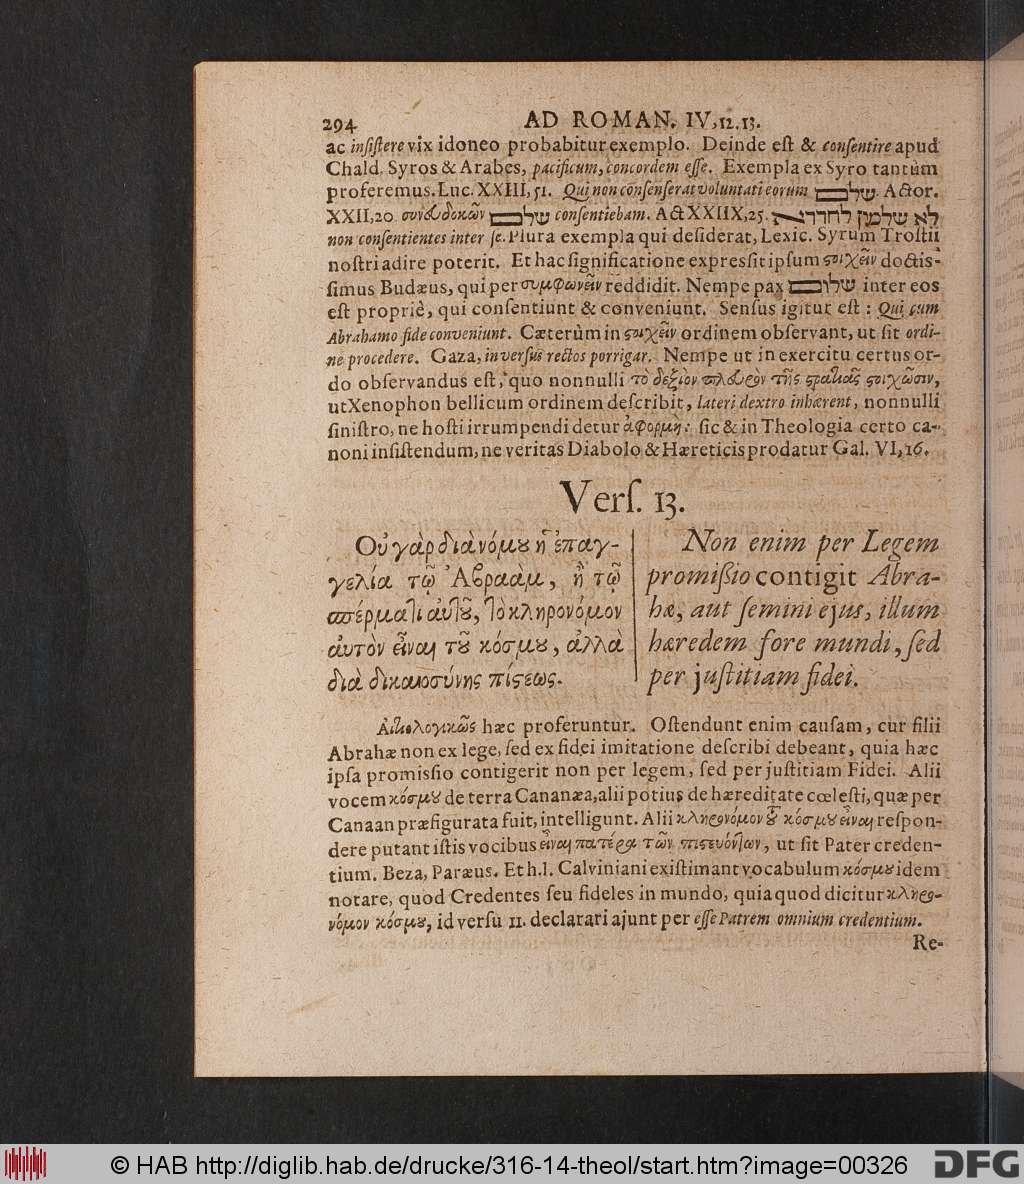 294 AD ROMAN. IV, 12. 13.
ac insistere vix idoneo probabitur exemplo. Deinde est & consentire apud
Chald. Syros & Arabes, pacificum, concordem esse. Exempla ex Syro tantùm
proferemus. Luc. XXIII, 51. Qui non consenserat voluntati eorum שלם. Actor.
XXII, 20. συνευδοκῶν שלם consentiebam. Act XXIIX, 25. לא שלמין לחדדא
non consentientes inter se. Plura exempla qui desiderat, Lexic. Syrum Trostii
nostri adire poterit. Et hac significatione expressit ipsum ςοιχεῖν doctis-
simus Budæus, qui per συμφωνεῖν reddidit. Nempe pax שלום inter eos
est propriè, qui consentiunt & conveniunt. Sensus igitur est: Qui cum
Abrahamo fide conveniunt. Cæterùm in ςοιχεῖν ordinem observant, ut sit ordi-
ne procedere. Gaza, in versus rectos porrigar. Nempe ut in exercitu certus or-
do observandus est, quo nonnulli τὸ δεξιὸν πλευρὸν τῆς ςρατιᾶς ςοιχῶσιν,
ut Xenophon bellicum ordinem describit, lateri dextro inhærent, nonnulli
sinistro, ne hosti irrumpendi detur ἀφορμὴ: sic & in Theologia certo ca-
noni insistendum, ne veritas Diabolo & Hæreticis prodatur Gal. VI, 16.
Vers. 13.
Οὐ γὰρ διὰ νόμου ἡ ἐπαγ-
γελία τῷ Ἀβραὰμ, ἢ τῷ
σπέρματι αὐτοῦ, τὸ κληρονόμον
αὐτὸν εἶναι τοῦ κόσμου, ἀλλὰ
διὰ δικαιοσύνης πίςεως.
Non enim per Legem
promissio contigit Abra-
hæ, aut semini ejus, illum
hæredem fore mundi, sed
per justitiam fidei.
Αἰτιολογικῶς hæc proferuntur. Ostendunt enim causam, cur filii
Abrahæ non ex lege, sed ex fidei imitatione describi debeant, quia hæc
ipsa promissio contigerit non per legem, sed per justitiam Fidei. Alii
vocem κόσμου de terra Cananæa, alii potius de hæreditate cœlesti, quæ per
Canaan præfigurata fuit, intelligunt. Alii κληρονόμον τοῦ κόσμου εἶναι respon-
dere putant istis vocibus εἶναι πατέρα τῶν πιςευόντων, ut sit Pater creden-
tium. Beza, Paræus. Et h. l. Calviniani existimant vocabulum κόσμου idem
notare, quod Credentes seu fideles in mundo, quia quod dicitur κληρο-
νόμον κόσμου, id versu 11. declarari ajunt per esse Patrem omnium credentium.
Re-
© HAB http://diglib.hab.de/drucke/316-14-theol/start.htm?image=00326
DFG